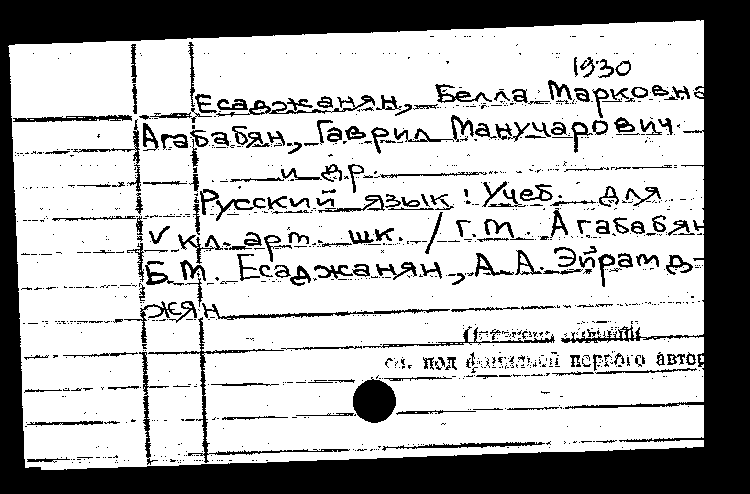 1930
Есаджанян, Белла Марковна
Агабабян, Гаврил Манучарович
и др.
Русский язык : Учеб. для
V кл. арт. шк. / Г.М. Агабабян
Б.М. Есаджанян, А.А. Эйрамд-
жян
см. под фамилией первого автор